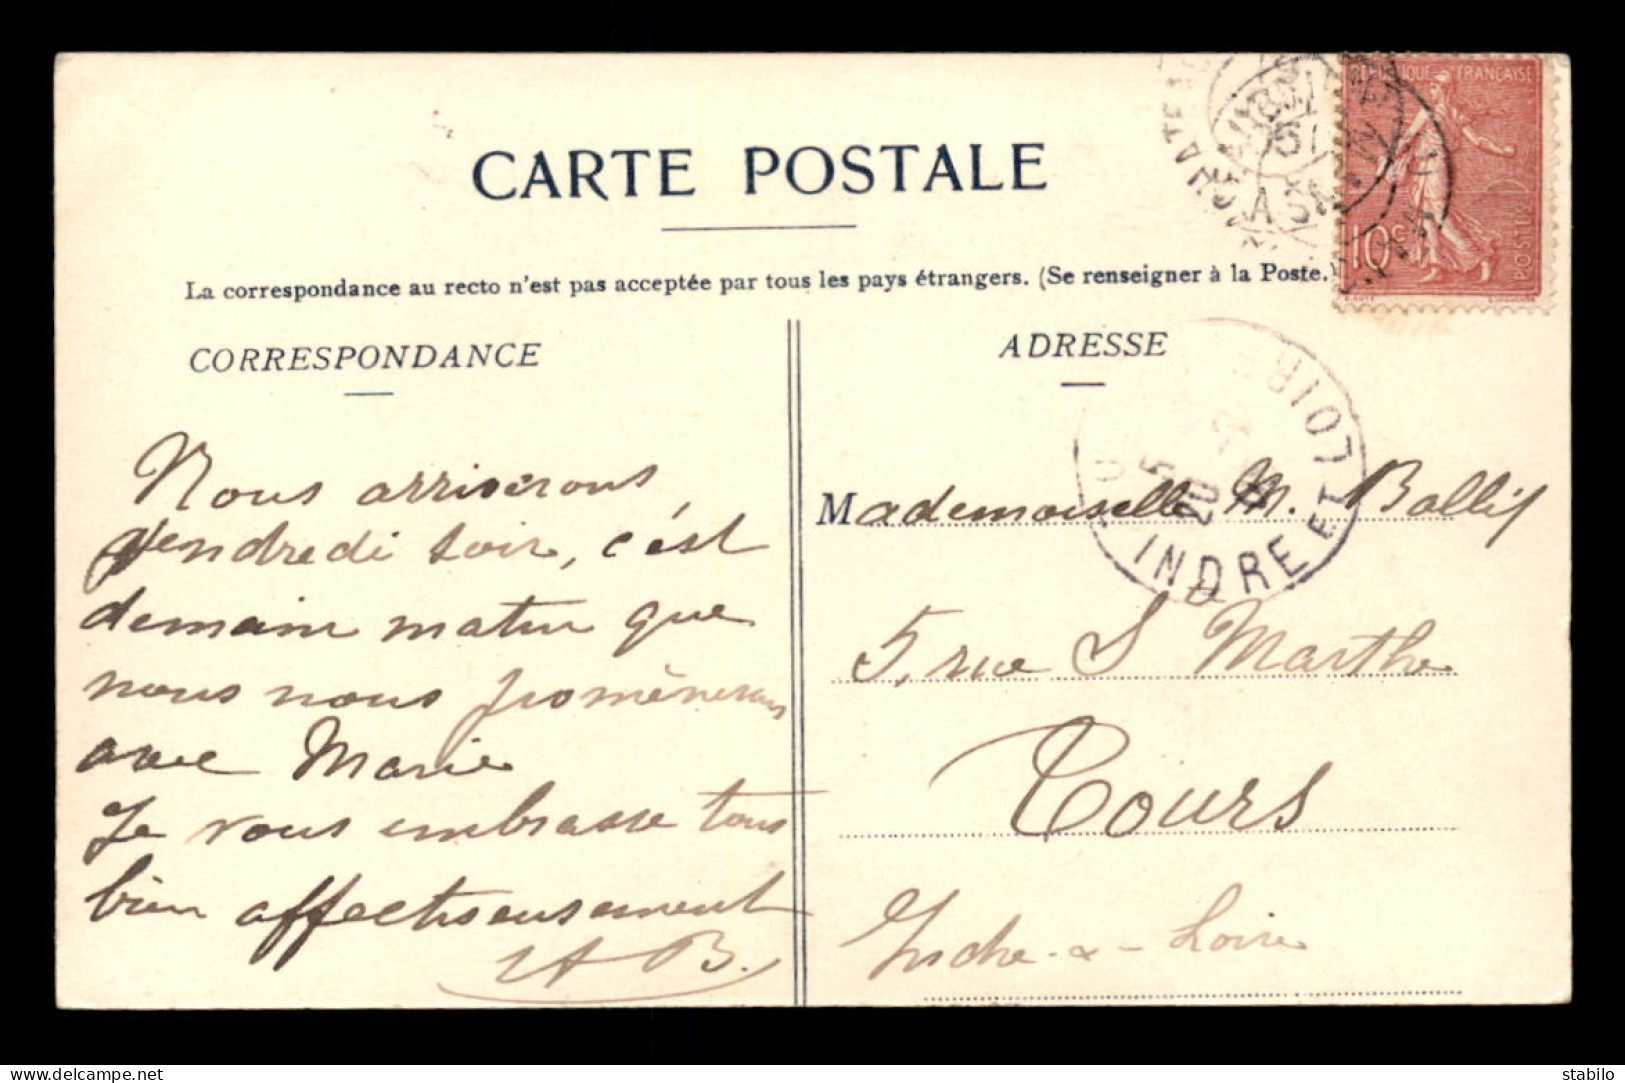 CARTE POSTALE
RÉPUBLIQUE FRANÇAISE
10c
POSTES
La correspondance au recto n'est pas acceptée par tous les pays étrangers. (Se renseigner à la Poste.)
CORRESPONDANCE
Nous arriverons
vendredi soir, c'est
demain matin que
nous nous promènerons
avec Marie
Je vous embrasse tous
bien affectueusement
ADRESSE
INDRE ET LOIRE
Mademoiselle M. Ballif
5, rue S Marthe
Tours
Indre-&-Loire
delcampe.net
stabilo